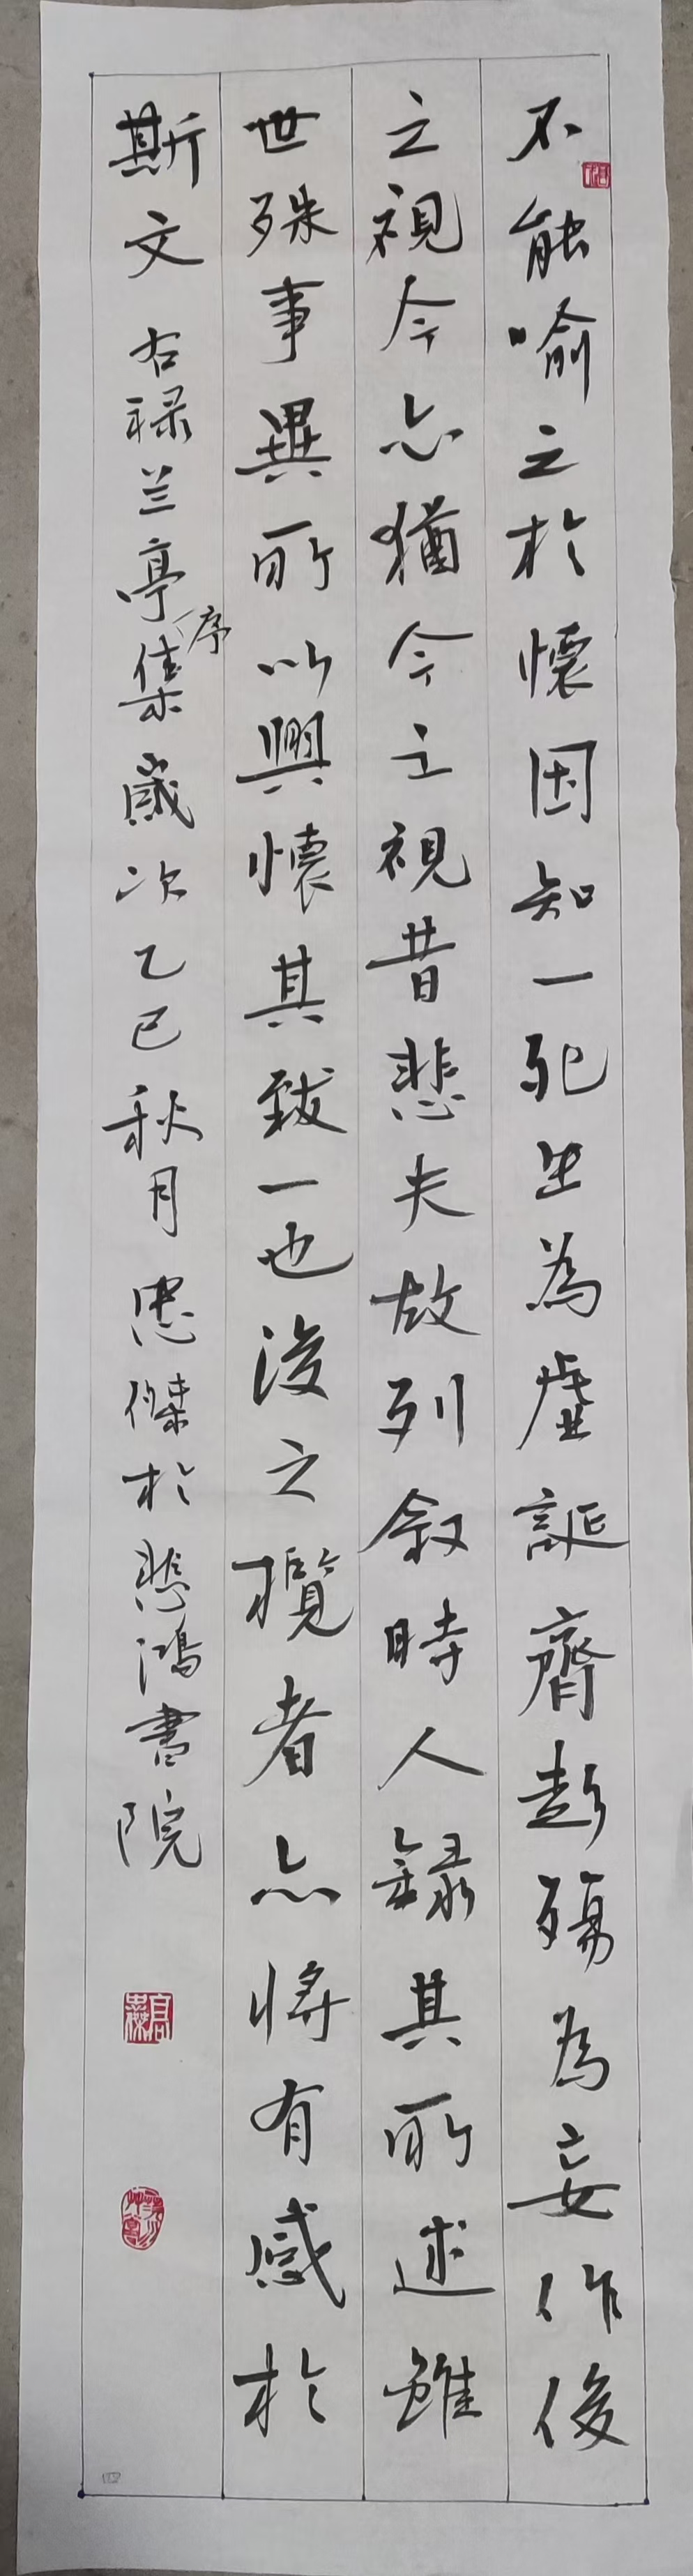 不能喻之於懷固知一死生為虛誕齊彭殤為妄作後
之視今亦猶今之視昔悲夫故列叙時人錄其所述雖
世殊事異所以興懷其致一也後之攬者亦將有感於
斯文 右禄兰亭集序歲次乙巳秋月 忠傑於悲鴻書院
四